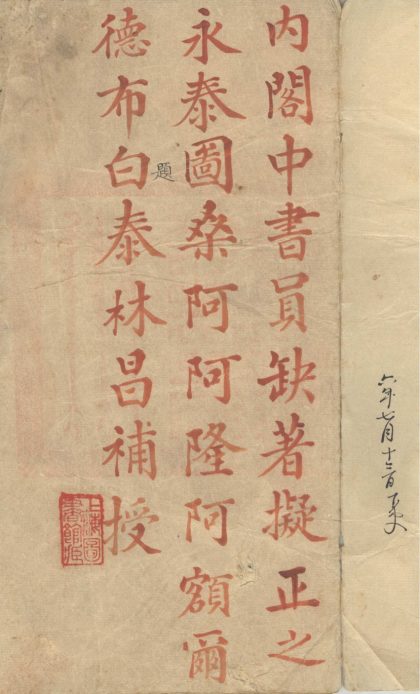 六年七月十
内閣中書員缺著擬正之
永泰圖桑阿阿隆阿額爾
題
德布白泰林昌補授
上海圖
書館藏